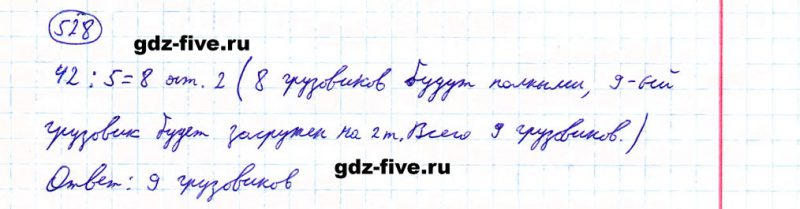 528
gdz-five.ru
42 : 5 = 8 ост. 2 ( 8 грузовиков будут полными, 9-ый
грузовик будет загружен на 2 т. Всего 9 грузовиков.)
gdz-five.ru
Ответ: 9 грузовиков